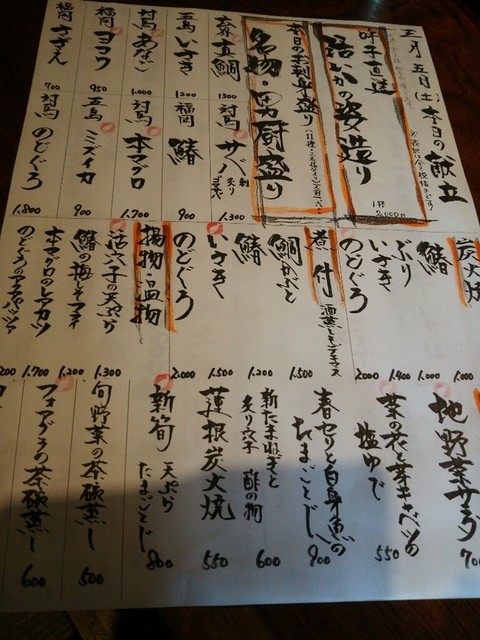 五月五日(土)本日の献立
呼子直送
活いかの姿造り
1杯
2,000円
本日のお刺身盛り
名物・男厨盛り
玄界 真鯛 1300
五島 いさき 1200
対馬 あなご 1,000
福岡 ヨコワ 950
福岡 さざえ 700
対馬 サバ 刺 炙り ごまや 1.300
福岡 鰆 900
対馬 本マグロ 1.700
五島 ミズイカ 900
対馬 のどぐろ 1.800
炭火焼
鰆 1.000
ぶり 1.000
いさき 1.400
のどぐろ 2000
煮付
鯛かぶと 1.500
鰆 1.200
いさき 1.500
のどぐろ 2.000
揚物・温物
活穴子の天ぷら 1.300
鰆の梅しそフライ 1.200
本マグロのレアカツ 1.700
のどぐろの
地野菜サラダ 700
菜の花と芽キャベツの塩ゆで 550
春セリと白身魚のたまごとじ 900
新たまねぎと炙り穴子 酢の物 600
蓮根炭火焼 550
新筍 天ぷら たまごとじ 800
旬野菜の茶碗蒸し 500
フォアグラの茶碗蒸し 600